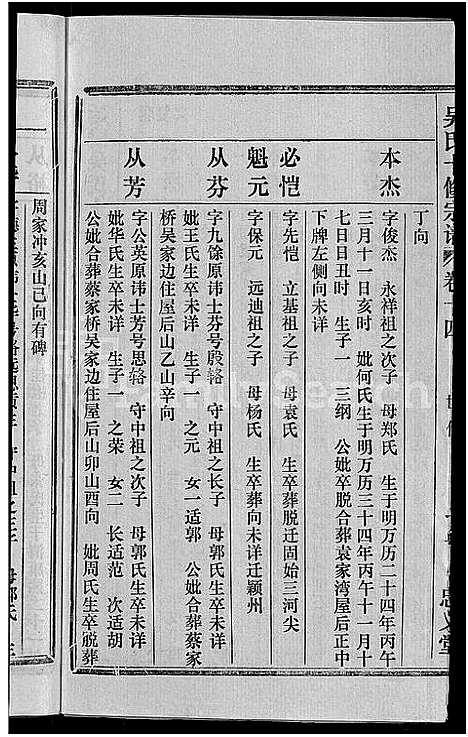 吴氏十修宗谱 卷十四
丁向
本杰
字俊杰 永祥祖之次子 母郑氏 生于明万历二十四年丙午
三月十一日亥时 妣何氏生于明万历三十四年丙午十一月十
七日日丑时 生子一 三纲 公妣卒脱合葬袁家湾屋后正中
下牌左侧向未详
必恺
字先恺 立基祖之子 母袁氏 生卒葬脱迁固始三河尖
魁元
字保元 远迪祖之子 母杨氏 生卒葬向未详迁颖州
从芬
字九馀原讳士芬号殷辂 守中祖之长子 母郭氏生卒未详
妣王氏生卒未详 生子一 之元 女一适郭 公妣合葬蔡家
桥吴家边住屋后山乙山辛向
从芳
字公英原讳士芳号思辂 守中祖之次子 母郭氏生卒未详
妣华氏生卒未详 生子一 之荣 女二 长适范 次适胡
公妣合葬蔡家桥吴家边住屋后山卯山酉向 妣周氏生卒脱葬
周家冲亥山巳向有碑